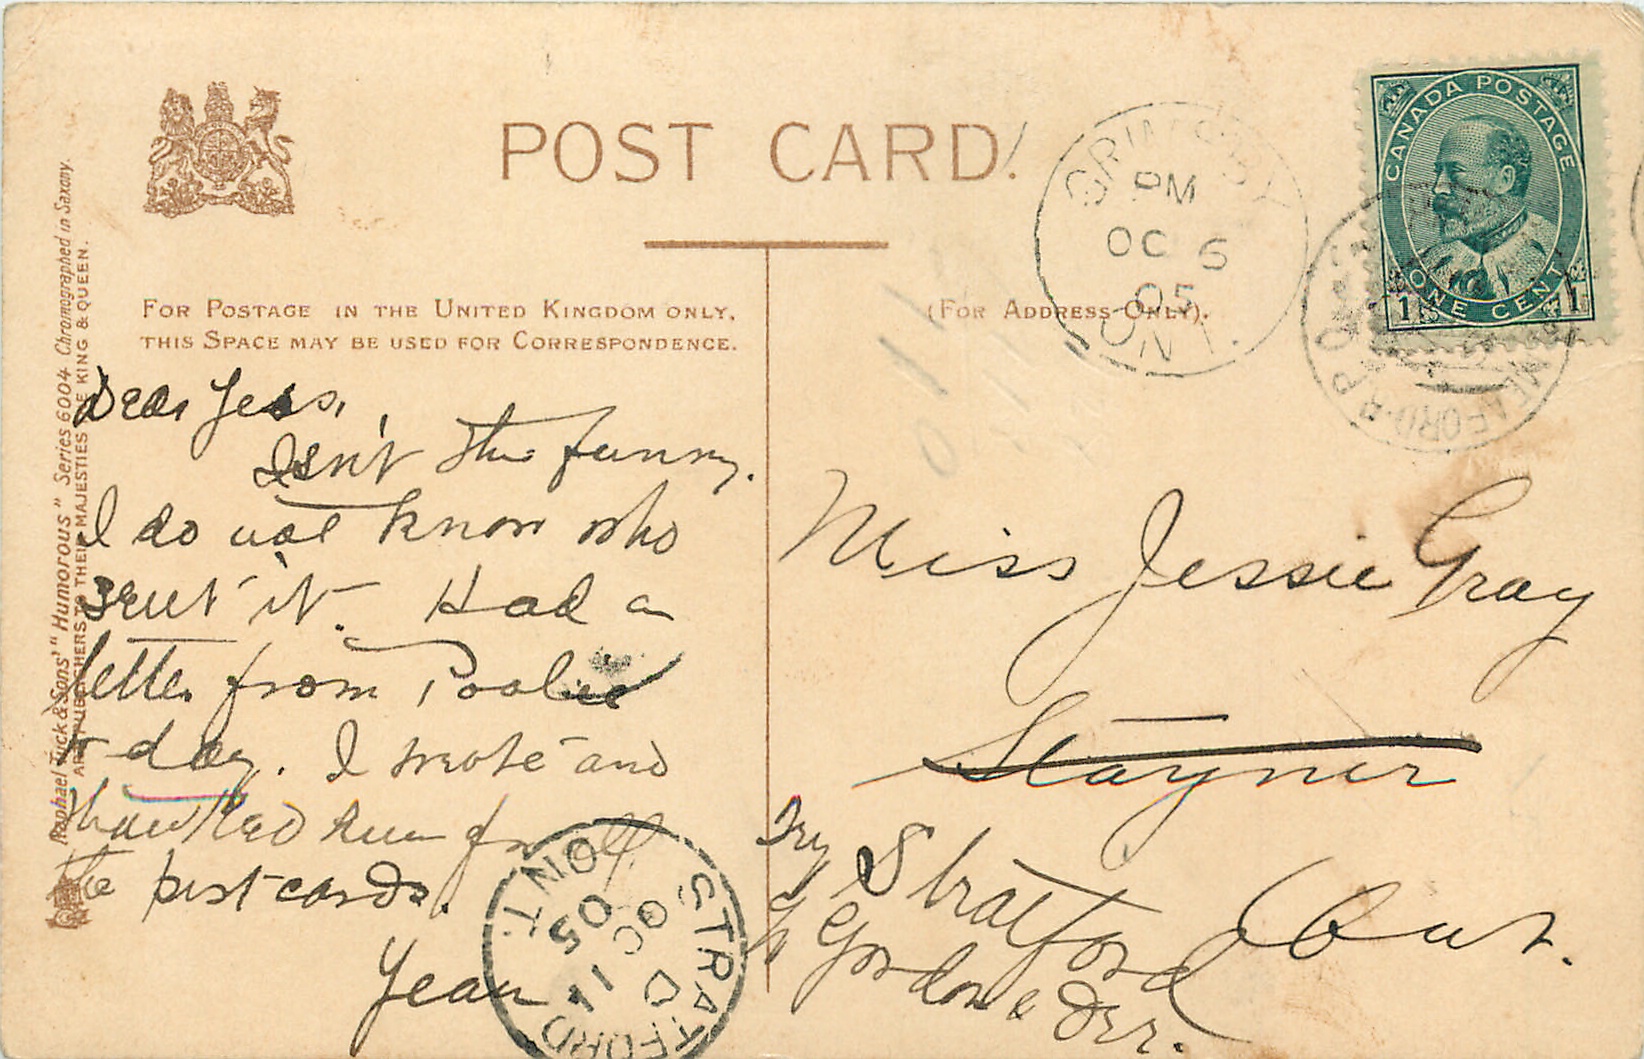 POST CARD
FOR POSTAGE IN THE UNITED KINGDOM ONLY,
THIS SPACE MAY BE USED FOR CORRESPONDENCE.
(FOR ADDRESS ONLY).
Raphael Tuck & Sons' "Humorous" Series 6004 Chromographed in Saxony
ART PUBLISHERS TO THEIR MAJESTIES THE KING & QUEEN.
Dear Jess,
Isn't this funny.
I do not know who
sent it. Had a
letter from
to-day. I wrote and
thanked him for all
the post cards.
Jean
Miss Jessie Gray
Stayner
Try Stratford Ont.
Gordon &
CANADA POSTAGE
ONE CENT
1 1
GRIMSBY
PM
OC 6
05
ONT.
MEAFORD R.P.O.
STRATFORD
D
OC 11
05
ONT.